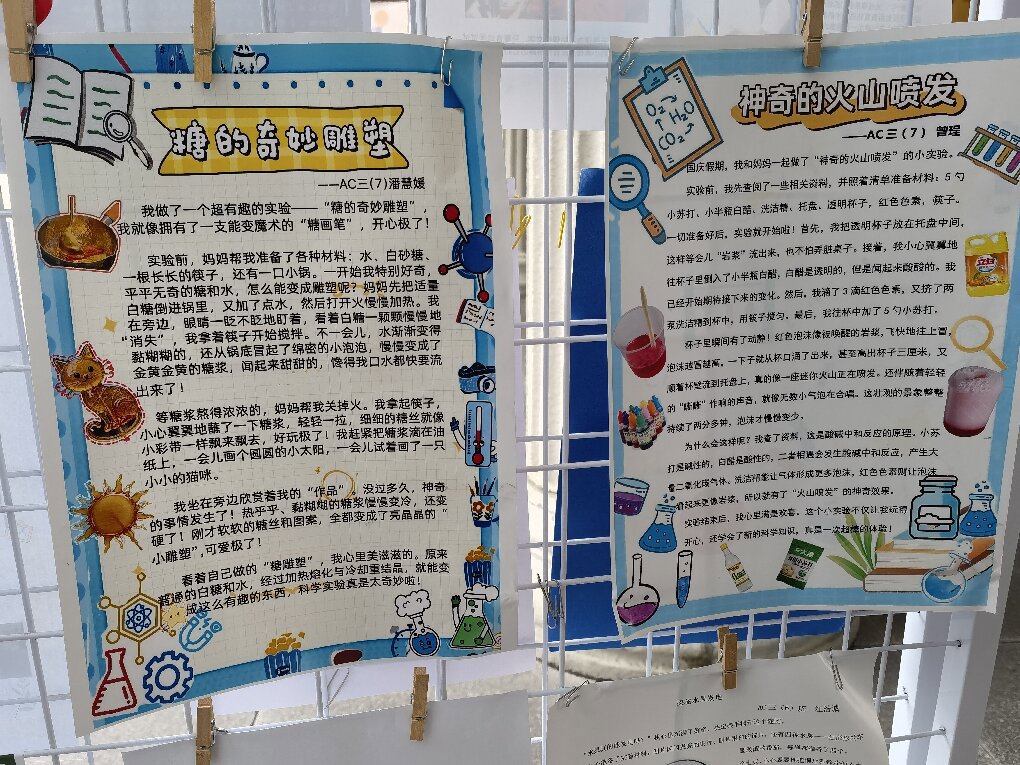 糖的奇妙雕塑
——AC三(7)潘慧媛
我做了一个超有趣的实验——“糖的奇妙雕塑”，
我就像拥有了一支能变魔术的“糖画笔”，开心极了！
实验前，妈妈帮我准备了各种材料：水、白砂糖、
一根长长的筷子，还有一口小锅。一开始我特别好奇，
平平无奇的糖和水，怎么能变成雕塑呢？妈妈先把适量
白糖倒进锅里，又加了点水，然后打开火慢慢加热。我
在旁边，眼睛一眨不眨地盯着，看着白糖一颗颗慢慢地
“消失”，我拿着筷子开始搅拌。不一会儿，水渐渐变得
黏糊糊的，还从锅底冒起了绵密的小泡泡，慢慢变成了
金黄金黄的糖浆，闻起来甜甜的，馋得我口水都快要流
出来了！
等糖浆熬得浓浓的，妈妈帮我关掉火。我拿起筷子，
小心翼翼地蘸了一下糖浆，轻轻一拉，细细的糖丝就像
小彩带一样飘来飘去，好玩极了！我赶紧把糖浆滴在油
纸上，一会儿画个圆圆的小太阳，一会儿试着画了一只
小小的猫咪。
我坐在旁边欣赏着我的“作品”，没过多久，神奇
的事情发生了！热乎乎、黏糊糊的糖浆慢慢变冷，还变
硬了！刚才软软的糖丝和图案，全都变成了亮晶晶的“
小雕塑”，可爱极了！
看着自己做的“糖雕塑”，我心里美滋滋的。原来
普通的白糖和水，经过加热熔化与冷却重结晶，就能变
成这么有趣的东西，科学实验真是太奇妙啦！
O₂
H₂O
CO₂
神奇的火山喷发
——AC三（7） 曾珵
国庆假期，我和妈妈一起做了“神奇的火山喷发”的小实验。
实验前，我先查阅了一些相关资料，并照着清单准备材料：5勺
小苏打、小半瓶白醋、洗洁精、托盘、透明杯子，红色色素，筷子。
一切准备好后，实验就开始啦！首先，我把透明杯子放在托盘中间，
这样等会儿“岩浆”流出来，也不怕弄脏桌子。接着，我小心翼翼地
往杯子里倒入了小半瓶白醋，白醋是透明的，但是闻起来酸酸的。我
已经开始期待接下来的变化。然后，我滴了3滴红色色素，又挤了两
泵洗洁精到杯中，用筷子搅匀。最后，我往杯中加了5勺小苏打，
杯子里瞬间有了动静！红色泡沫像被唤醒的岩浆，飞快地往上冒，
泡沫越冒越高，一下子就从杯口涌了出来，甚至高出杯子三厘米，又
顺着杯壁流到托盘上，真的像一座迷你火山正在喷发。还伴随着轻轻
的“嘶嘶”作响的声音，就像无数小气泡在合唱。这壮观的景象整整
持续了两分多钟，泡沫才慢慢变少。
为什么会这样呢？我查了资料，这是酸碱中和反应的原理。小苏
打是碱性的，白醋是酸性的，二者相遇会发生酸碱中和反应，产生大
量二氧化碳气体，洗洁精能让气体形成更多泡沫，红色色素则让泡沫
看起来更像岩浆，所以就有了“火山喷发”的神奇效果。
实验结束后，我心里满是欢喜。这个小实验不仅让我玩得
开心，还学会了新的科学知识，真是一次超棒的体验！